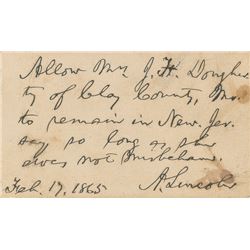 Allow Mrs J. H. Dougher
ty of Clay County, Mo.
to remain in New. Jer.
sey so long as she
does not misbehave.
Feb. 17, 1865 A. Lincoln